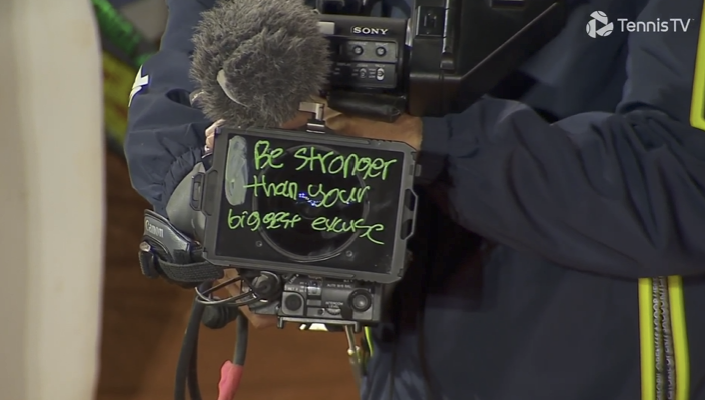 TennisTV
SONY
Be stronger
than your
biggest excuse
Canon